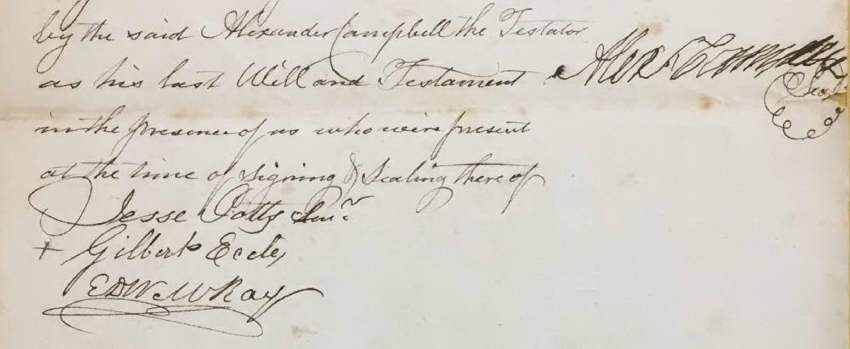 by the said Alexander Campbell the Testator
as his last Will and Testament
Alex Campbell
Seal
in the presence of us who were present
at the time of signing & Sealing there of
Jesse Potts Junr
+ Gilbert Eccles
EDW McKay